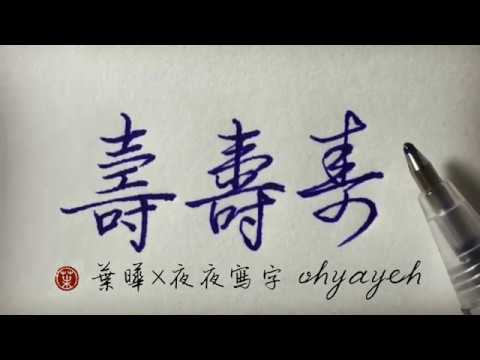 壽壽寿
葉曄×夜夜寫字 ohyayeh